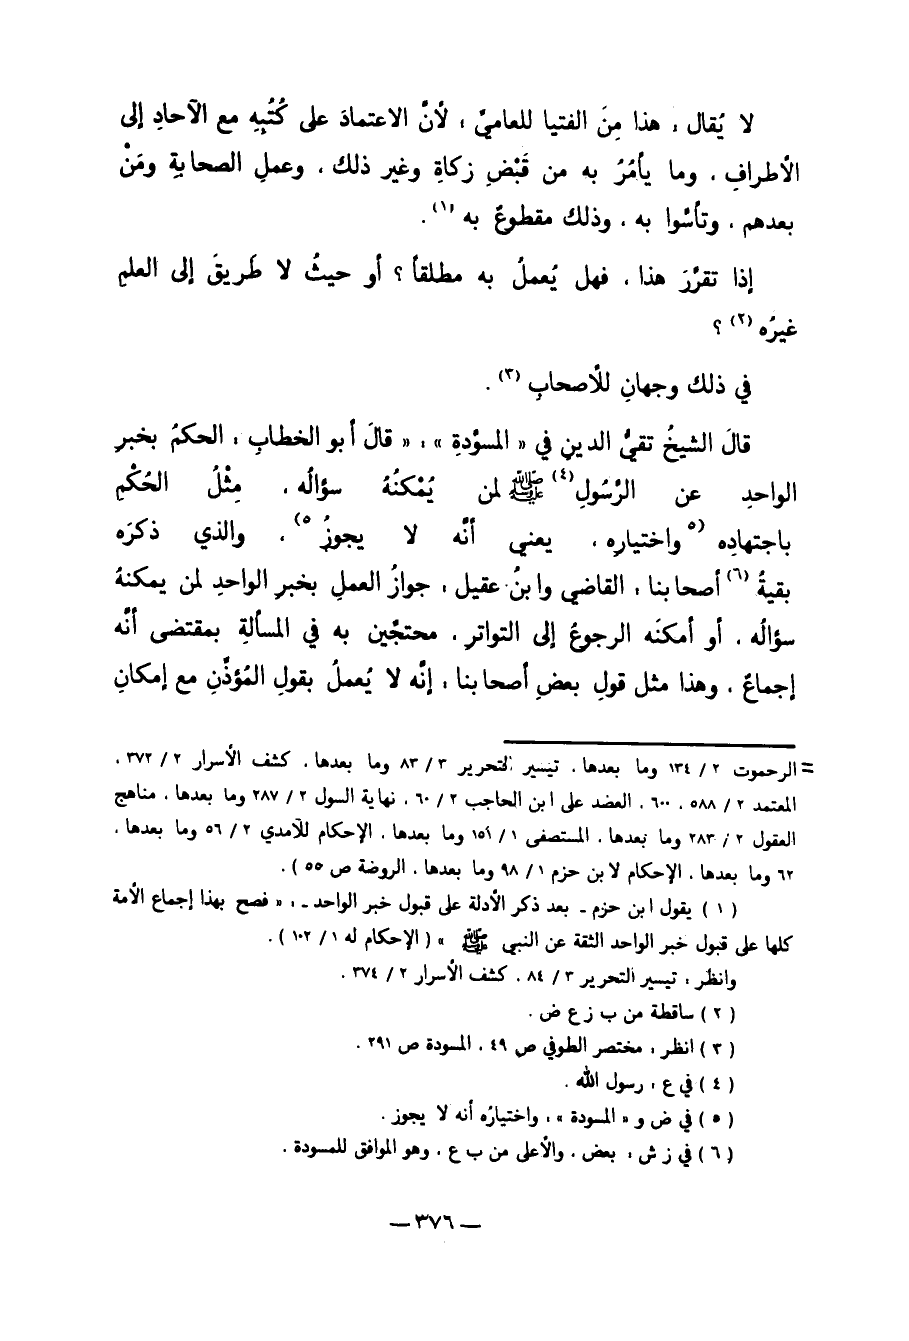 لا يُقال : هذا مِنَ الفتيا للعاميِّ ؛ لأنَّ الاعتمادَ على كُتُبِهِ مع الآحادِ إلى
الأطرافِ ، وما يأمُرُ به من قَبْضِ زكاةٍ وغير ذلك ، وعملِ الصحابةِ ومَنْ
بعدهم ، وتأسَّوا به ، وذلك مقطوعٌ به (١) .
إذا تقرَّرَ هذا ، فهل يُعملُ به مطلقاً ؟ أو حيثُ لا طَريقَ إلى العلمِ
غيرُه (٢) ؟
في ذلك وجهانِ للأصحابِ (٣) .
قالَ الشيخُ تقيُّ الدينِ في « المسوَّدةِ » : « قالَ أبو الخطابِ : الحكمُ بخبرِ
الواحدِ عن الرَّسُولِ (٤) ﷺ لمن يُمْكنُهُ سؤالُه ، مِثْلُ الحُكْمِ
باجتهادِه (٥ واختيارِه ، يعني أنَّه لا يجوزُ ٥) ، والذي ذكرَه
بقيةُ (٦) أصحابنا : القاضي وابنُ عقيل ، جوازُ العملِ بخبرِ الواحدِ لمن يمكنهُ
سؤالُه ، أو أمكنَه الرجوعُ إلى التواترِ ، محتجِّين به في المسألةِ بمقتضى أنَّه
إجماعٌ ، وهذا مثل قولِ بعضِ أصحابنا : إنَّه لا يُعملُ بقولِ المُؤذِّنِ مع إمكانِ
= الرحموت ٢ / ١٣٤ وما بعدها ، تيسير التحرير ٣ / ٨٣ وما بعدها ، كشف الأسرار ٢ / ٣٧٢ ،
المعتمد ٢ / ٥٨٨ ، ٦٠٠ ، العضد على ابن الحاجب ٢ / ٦٠ ، نهاية السول ٢ / ٢٨٧ وما بعدها ، مناهج
العقول ٢ / ٢٨٣ وما بعدها ، المستصفى ١ / ١٥١ وما بعدها ، الإحكام للآمدي ٢ / ٥٦ وما بعدها ،
٦٢ وما بعدها ، الإحكام لابن حزم ١ / ٩٨ وما بعدها ، الروضة ص ٥٥ ) .
( ١ ) يقول ابن حزم - بعد ذكر الأدلة على قبول خبر الواحد - : « فصح بهذا إجماع الأمة
كلها على قبول خبر الواحد الثقة عن النبي ﷺ » ( الإحكام له ١ / ١٠٢ ) .
وانظر : تيسير التحرير ٣ / ٨٤ ، كشف الأسرار ٢ / ٣٧٤ .
( ٢ ) ساقطة من ب ز ع ض .
( ٣ ) انظر : مختصر الطوفي ص ٤٩ ، المسودة ص ٢٩١ .
( ٤ ) في ع : رسول الله .
( ٥ ) في ض و « المسودة » : واختيارُه أنه لا يجوز .
( ٦ ) في ز ش : بعض ، والأعلى من ب ع ، وهو الموافق للمسودة .
— ٣٧٦ —